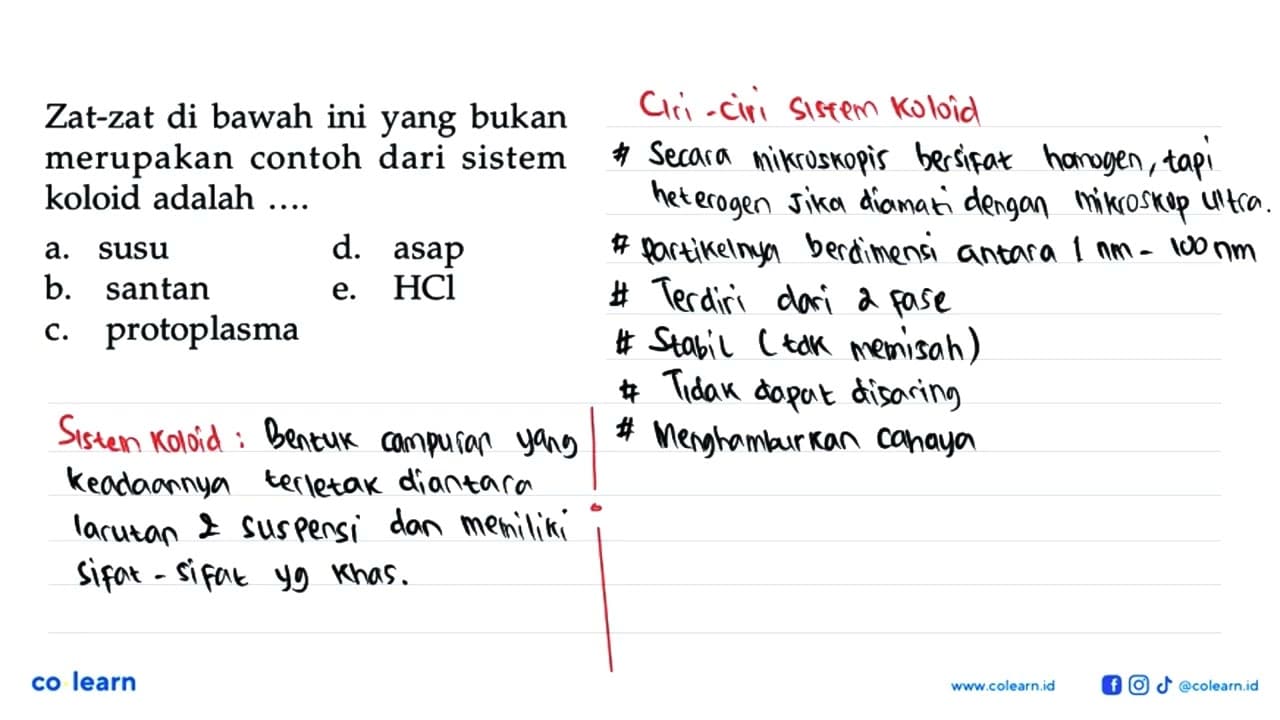 Zat-zat di bawah ini yang bukan
merupakan contoh dari sistem
koloid adalah ....
a. susu
b. santan
c. protoplasma
d. asap
e. HCl
Sistem Koloid : Bentuk campuran yang
keadaannya terletak diantara
larutan & suspensi dan memiliki
sifat - sifat yg khas.
Ciri - ciri Sistem Koloid
# Secara mikroskopis bersifat homogen, tapi
heterogen jika diamati dengan mikroskop ultra.
# Partikelnya berdimensi antara 1 nm - 100 nm
# Terdiri dari 2 fase
# Stabil (tdk memisah)
# Tidak dapat disaring
# Menghamburkan cahaya
co learn
www.colearn.id
@colearn.id